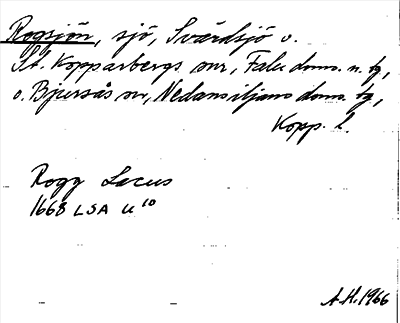 Rogsjön, sjö, Svärdsjö o.
St. Kopparbergs snr, Falu doms. n. tg,
o. Bjursås sn, Nedansiljans doms. tg,
Kopp. l.
Rogg Lacus
1668 LSA U 10
A.H. 1966